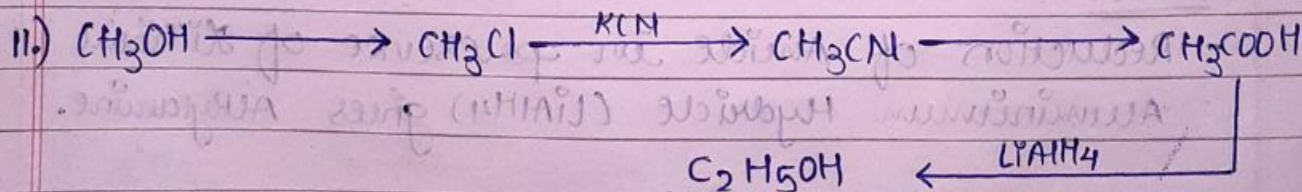 11.) CH₃OH ⟶ CH₃Cl —KCN→ CH₃CN ⟶ CH₃COOH
C₂H₅OH ←LiAlH₄—